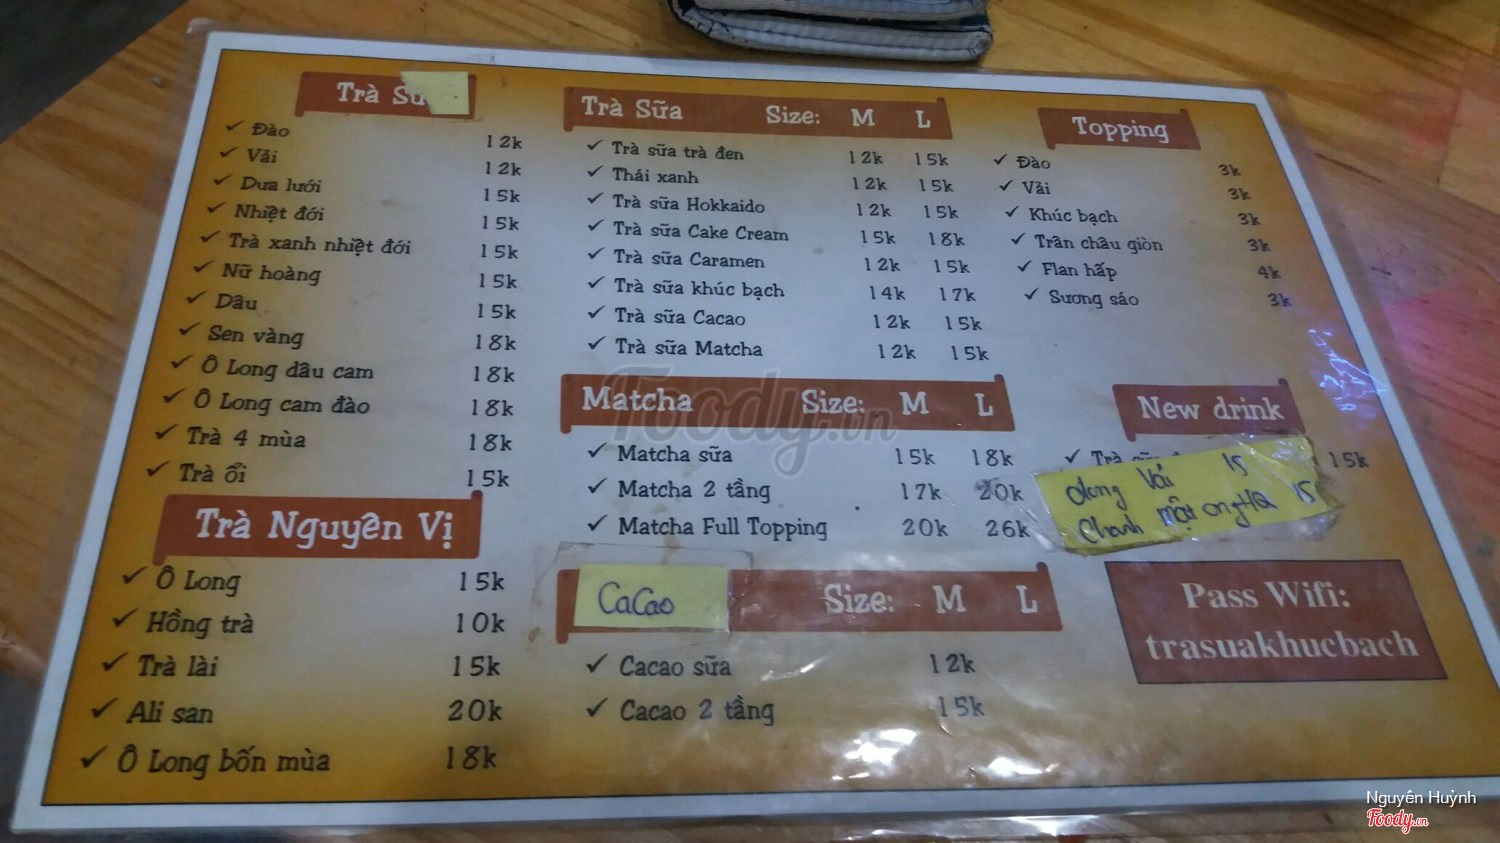 Trà Sữ
✓ Đào 12k
✓ Vải 12k
✓ Dưa lưới 15k
✓ Nhiệt đới 15k
✓ Trà xanh nhiệt đới 15k
✓ Nữ hoàng 15k
✓ Dâu 15k
✓ Sen vàng 18k
✓ Ô Long dâu cam 18k
✓ Ô Long cam đào 18k
✓ Trà 4 mùa 18k
✓ Trà ổi 15k
Trà Nguyên Vị
✓ Ô Long 15k
✓ Hồng trà 10k
✓ Trà lài 15k
✓ Ali san 20k
✓ Ô Long bốn mùa 18k
Trà Sữa Size: M L
✓ Trà sữa trà đen 12k 15k
✓ Thái xanh 12k 15k
✓ Trà sữa Hokkaido 12k 15k
✓ Trà sữa Cake Cream 15k 18k
✓ Trà sữa Caramen 12k 15k
✓ Trà sữa khúc bạch 14k 17k
✓ Trà sữa Cacao 12k 15k
✓ Trà sữa Matcha 12k 15k
Matcha Size: M L
✓ Matcha sữa 15k 18k
✓ Matcha 2 tầng 17k 20k
✓ Matcha Full Topping 20k 26k
CaCao Size: M L
✓ Cacao sữa 12k
✓ Cacao 2 tầng 15k
Topping
✓ Đào 3k
✓ Vải 3k
✓ Khúc bạch 3k
✓ Trân châu giòn 3k
✓ Flan hấp 4k
✓ Sương sáo 3k
New drink
✓ Trà 15k
olong Vải 15
Chanh mật ong HQ 15
Pass Wifi:
trasuakhucbach
Foody.vn
Nguyên Huỳnh
Foody.vn